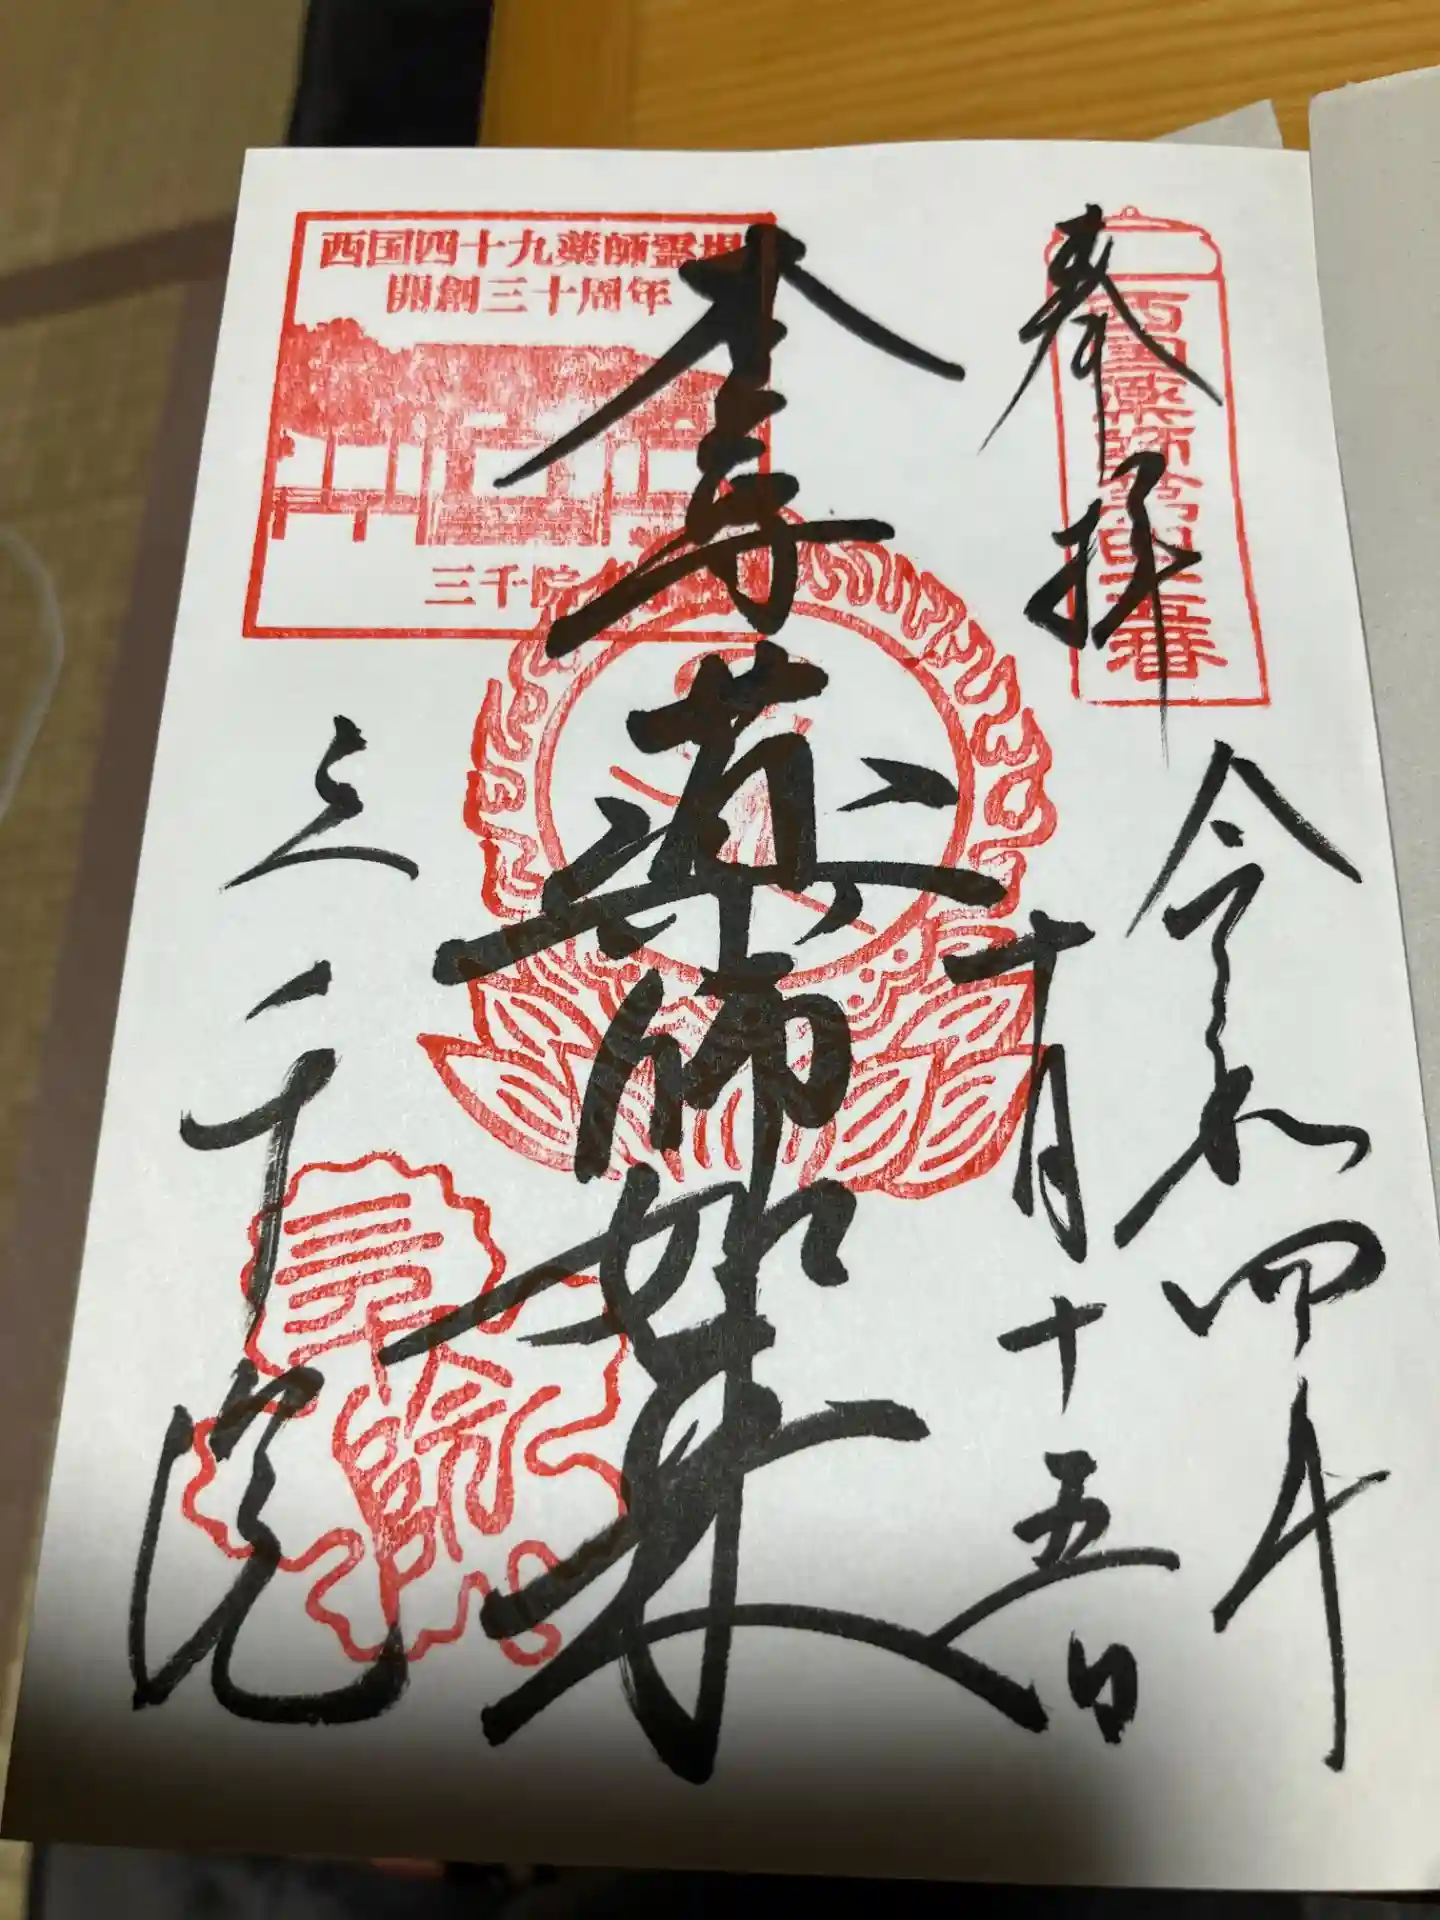 奉拝
西国薬師第四十五番
令和四年
十月十五日
本尊薬師如来
西国四十九薬師霊場
開創三十周年
三千院
三千院